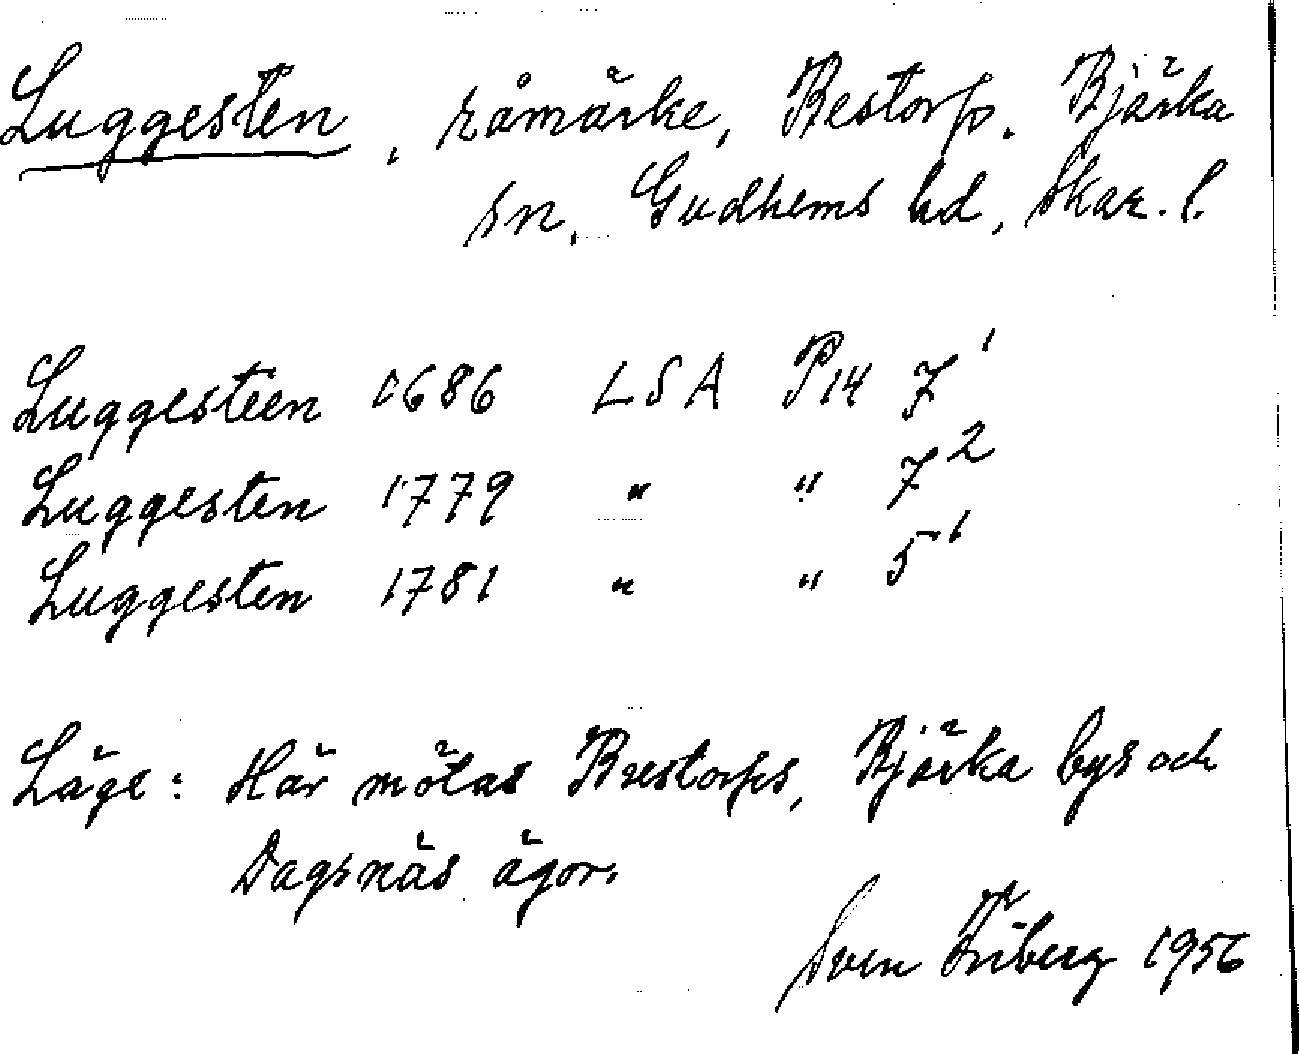 Luggesten, råmärke, Restorp. Bjärka
sn. Gudhems hd, Skar. l.
Luggesteen 1686 LSA P14 7¹
Luggesten 1779 " " 7²
Luggesten 1781 " " 5¹
Läge: Här mötas Restorps, Bjärka bys och
Dagsnäs ägor.
Sven Friberg 1956